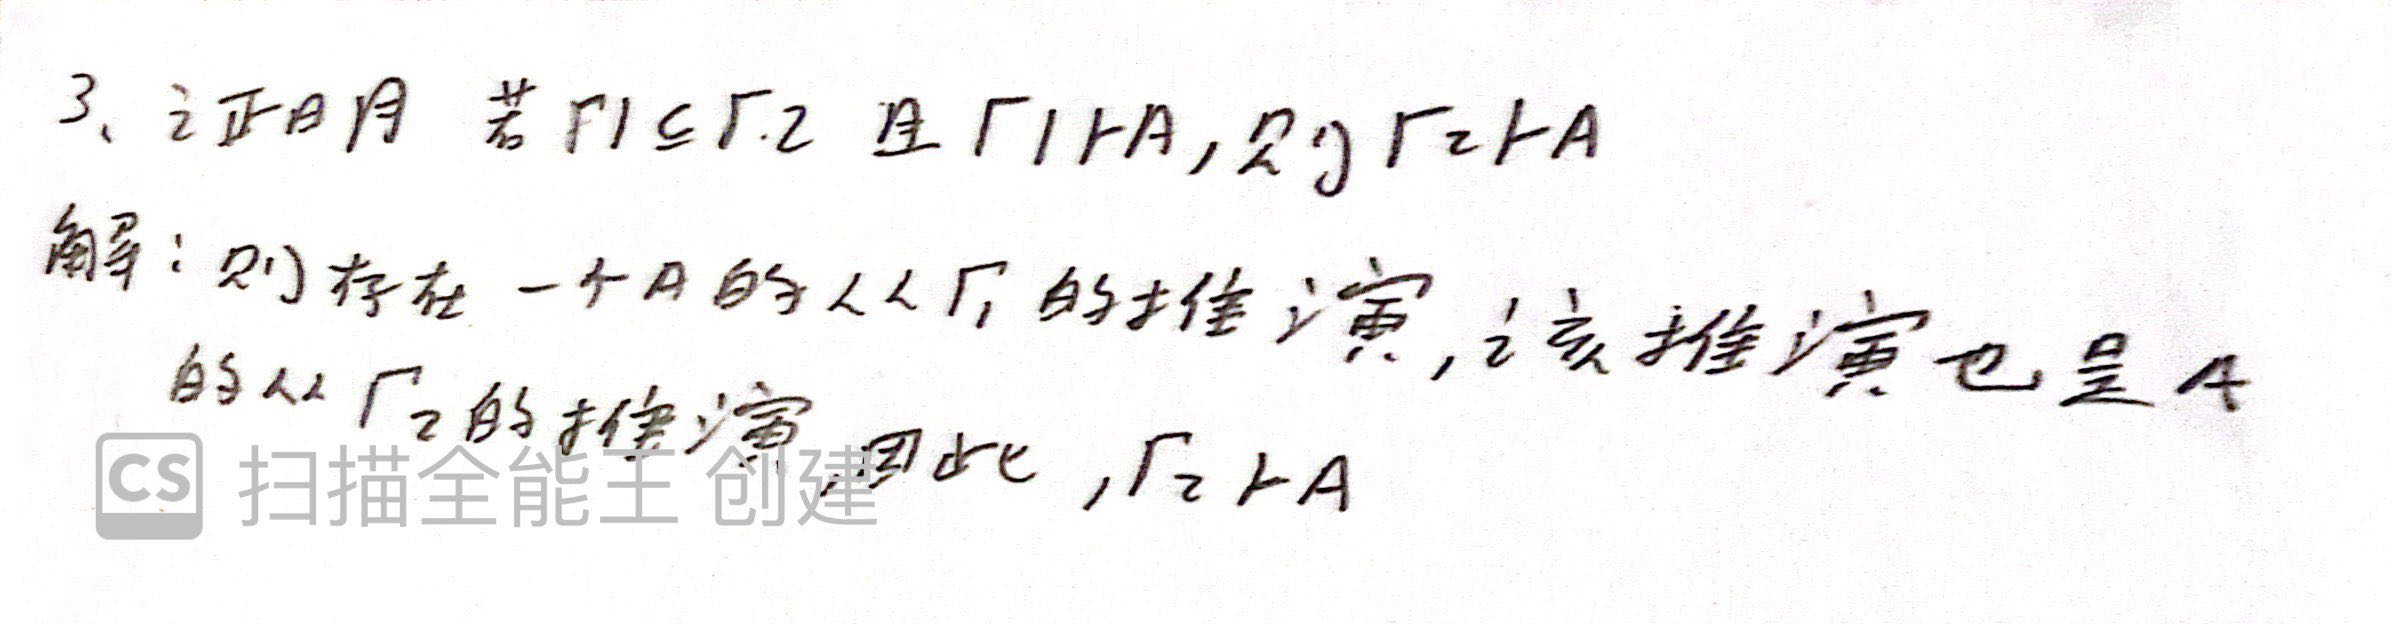 3、证明 若Γ1⊆Γ.2 且Γ1⊢A,则Γ2⊢A
解:则存在一个A的从Γ1的推演,该推演也是A
的从Γ2的推演,因此,Γ2⊢A
CS 扫描全能王 创建